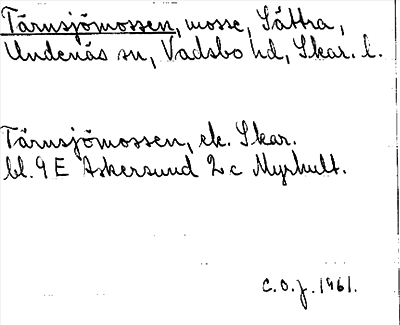 Tärnsjömossen, mosse, Sättra,
Undenäs sn, Vadsbo hd, Skar. l.
Tärnsjömossen, ek. Skar.
bl. 9 E Askersund 2 c Myrhult.
C.O.J. 1961.